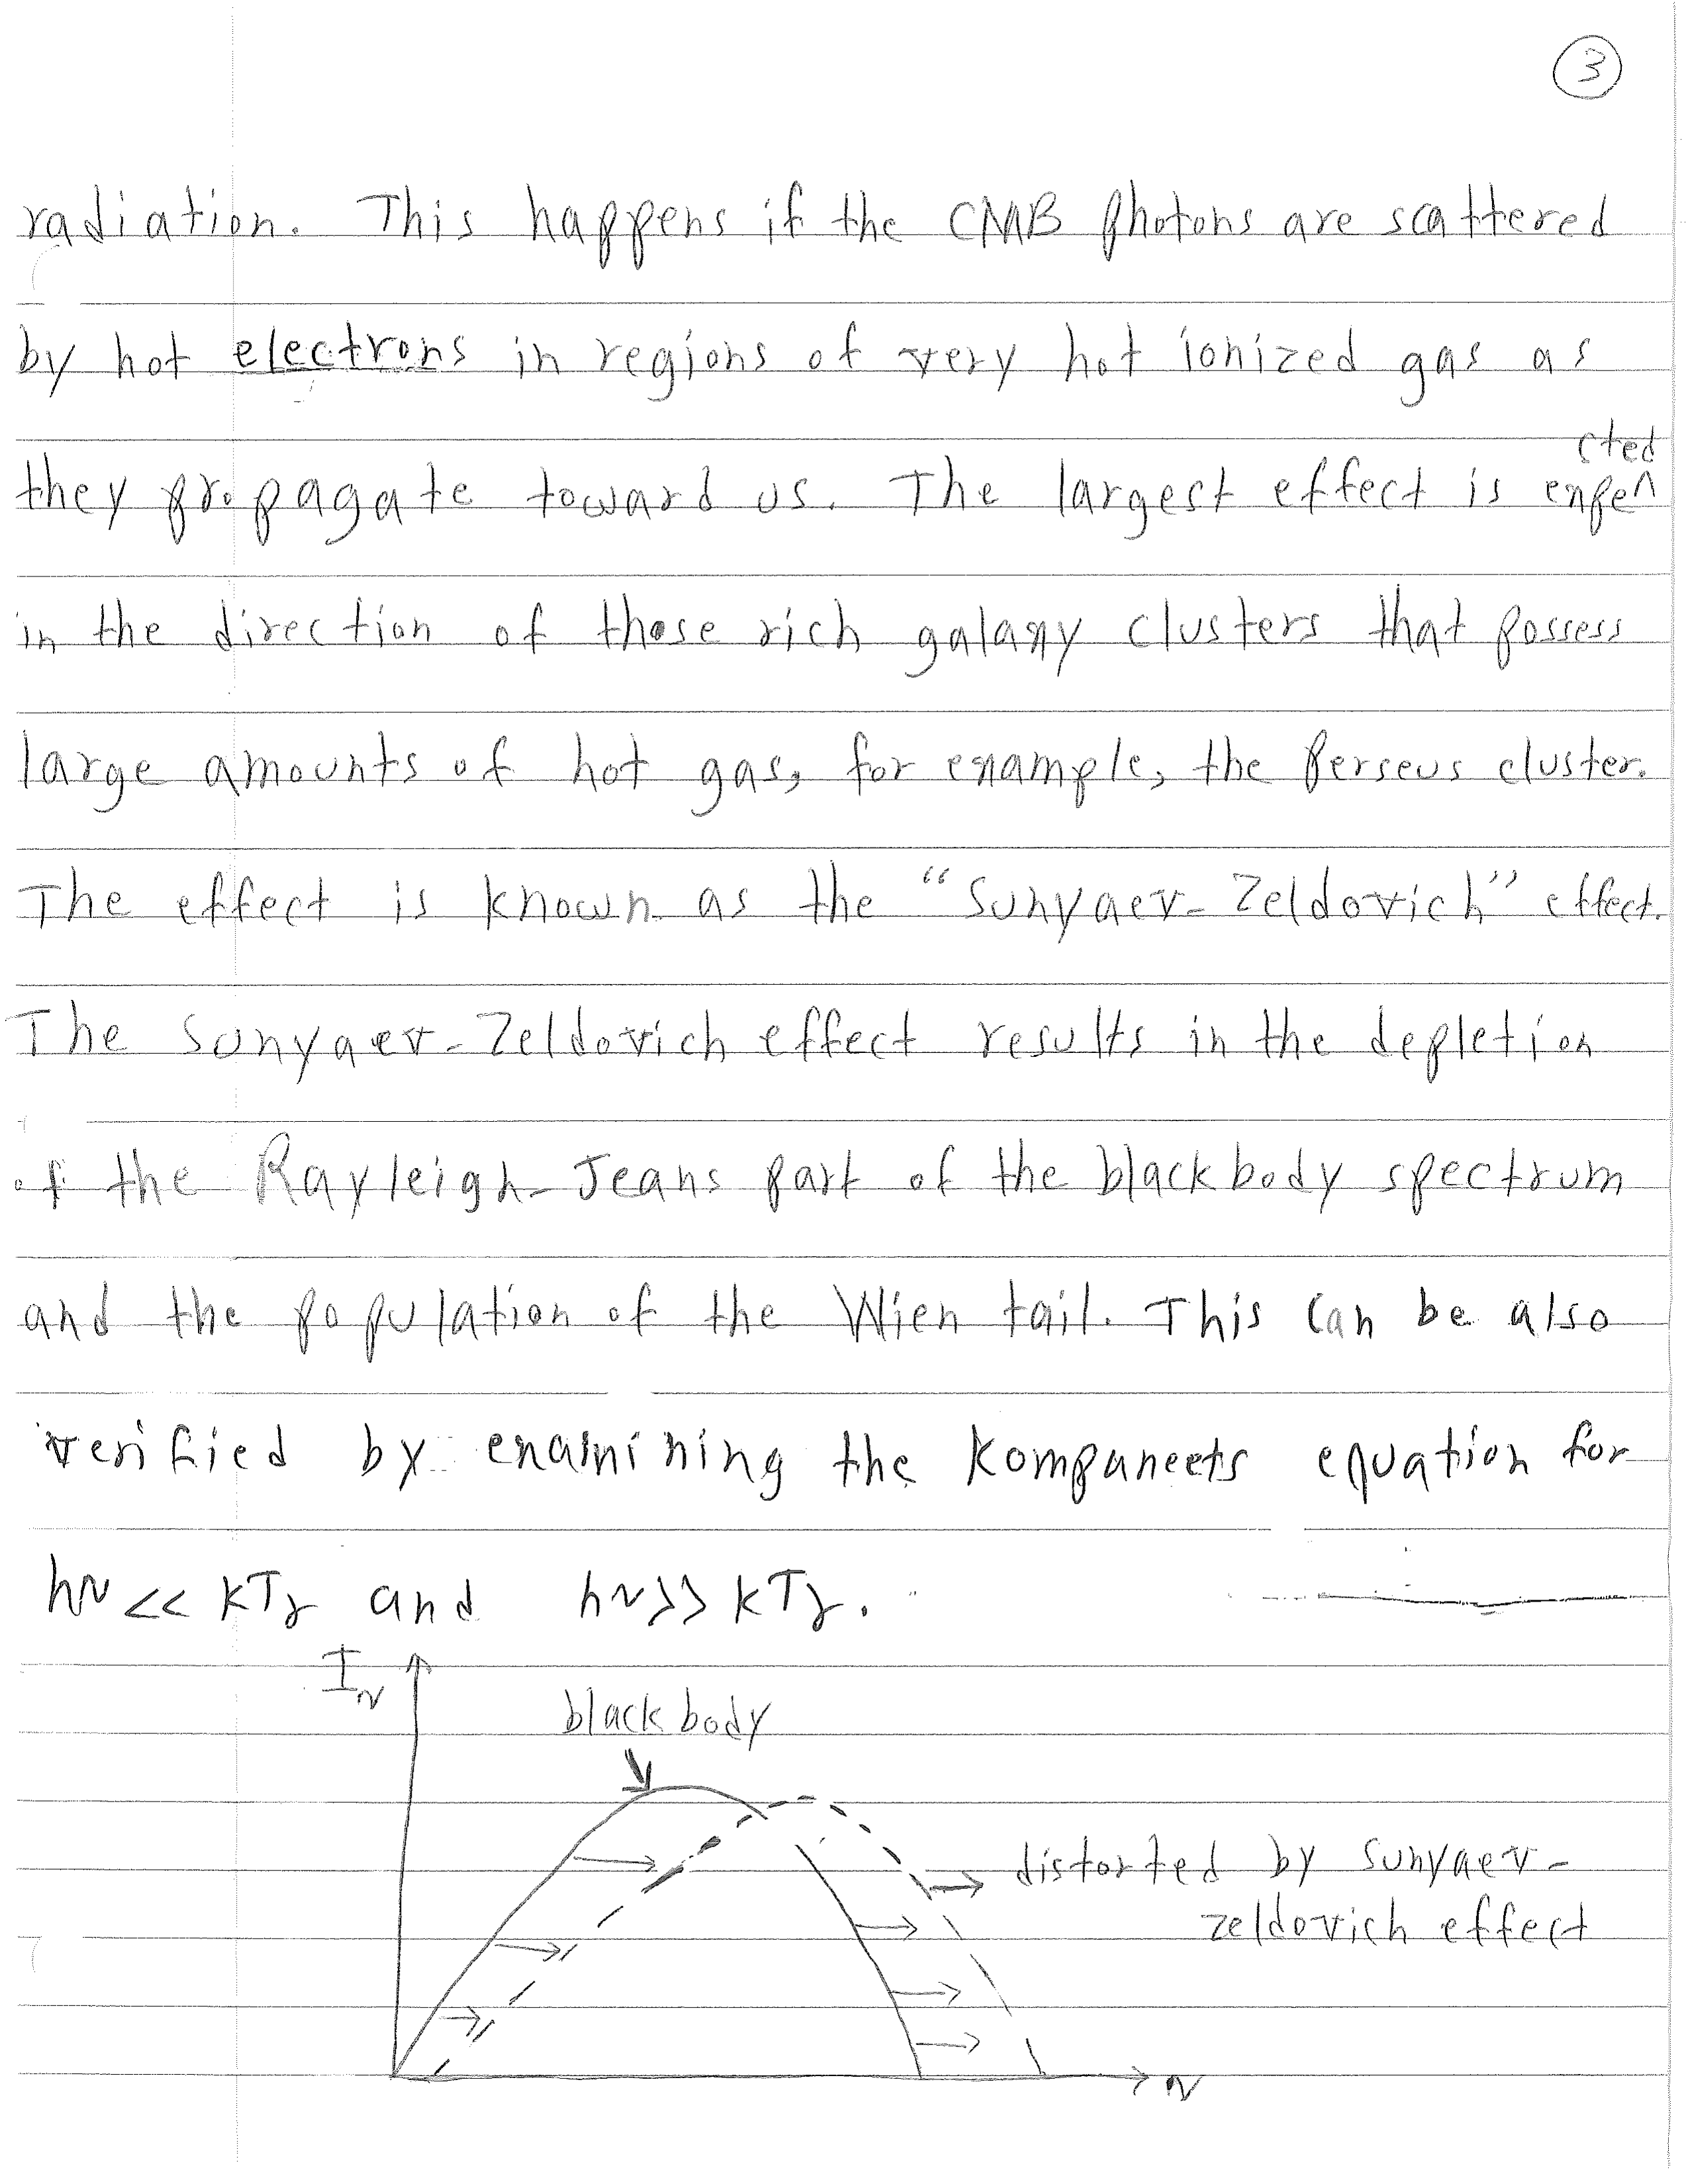 3
radiation. This happens if the CMB photons are scattered
by hot electrons in regions of very hot ionized gas as
they propagate toward us. The largest effect is expected
in the direction of those rich galaxy clusters that possess
large amounts of hot gas, for example, the Perseus cluster.
The effect is known as the “Sunyaev-Zeldovich” effect.
The Sunyaev-Zeldovich effect results in the depletion
of the Rayleigh-Jeans part of the blackbody spectrum
and the population of the Wien tail. This can be also
verified by examining the Kompaneets equation for
hν << kTγ and hν >> kTγ.
Iν
blackbody
distorted by Sunyaev-
Zeldovich effect
ν